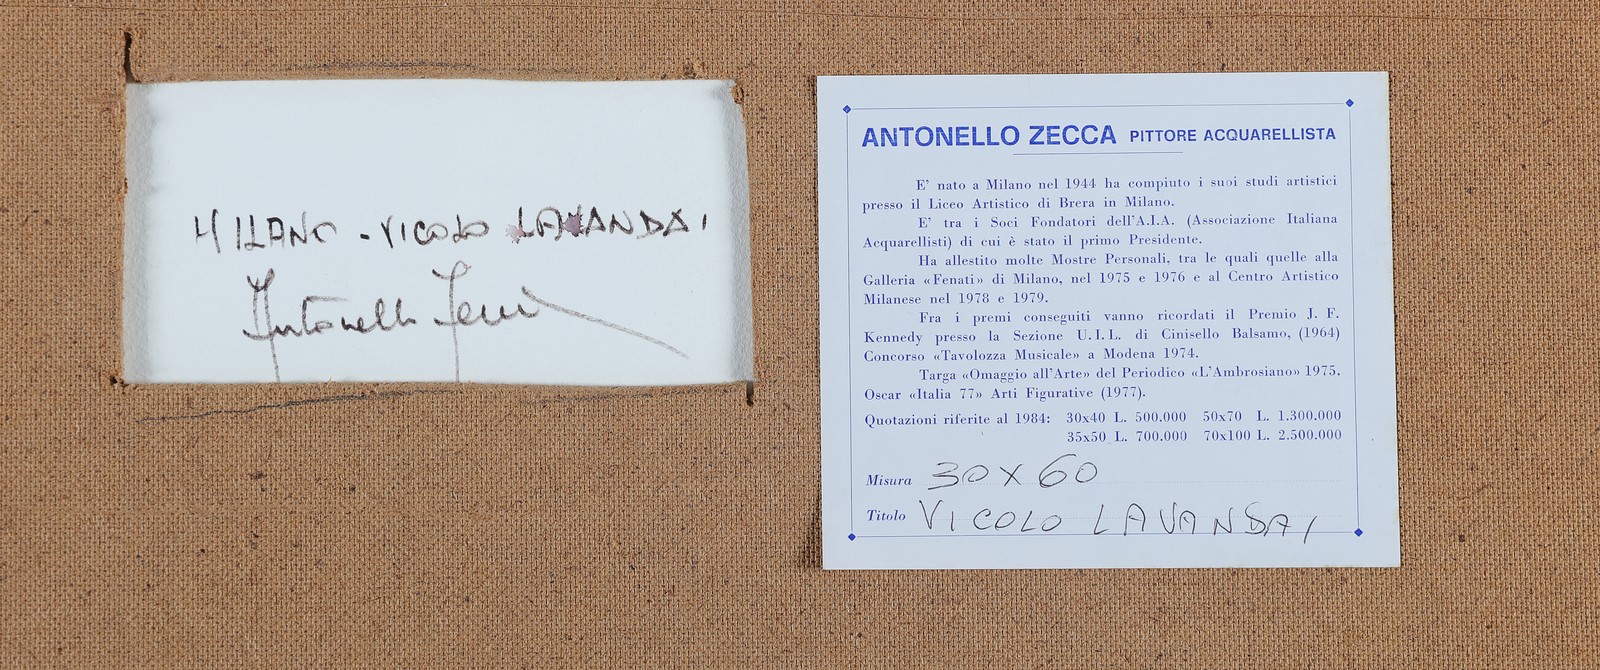 MILANO - VICOLO LAVANDAI
Antonello Zecca
ANTONELLO ZECCA PITTORE ACQUARELLISTA
E' nato a Milano nel 1944 ha compiuto i suoi studi artistici
presso il Liceo Artistico di Brera in Milano.
E' tra i Soci Fondatori dell'A.I.A. (Associazione Italiana
Acquarellisti) di cui è stato il primo Presidente.
Ha allestito molte Mostre Personali, tra le quali quelle alla
Galleria «Fenati» di Milano, nel 1975 e 1976 e al Centro Artistico
Milanese nel 1978 e 1979.
Fra i premi conseguiti vanno ricordati il Premio J. F.
Kennedy presso la Sezione U.I.L. di Cinisello Balsamo, (1964)
Concorso «Tavolozza Musicale» a Modena 1974.
Targa «Omaggio all'Arte» del Periodico «L'Ambrosiano» 1975.
Oscar «Italia 77» Arti Figurative (1977).
Quotazioni riferite al 1984: 30x40 L. 500.000 50x70 L. 1.300.000
35x50 L. 700.000 70x100 L. 2.500.000
Misura 30X60
Titolo VICOLO LAVANDAI